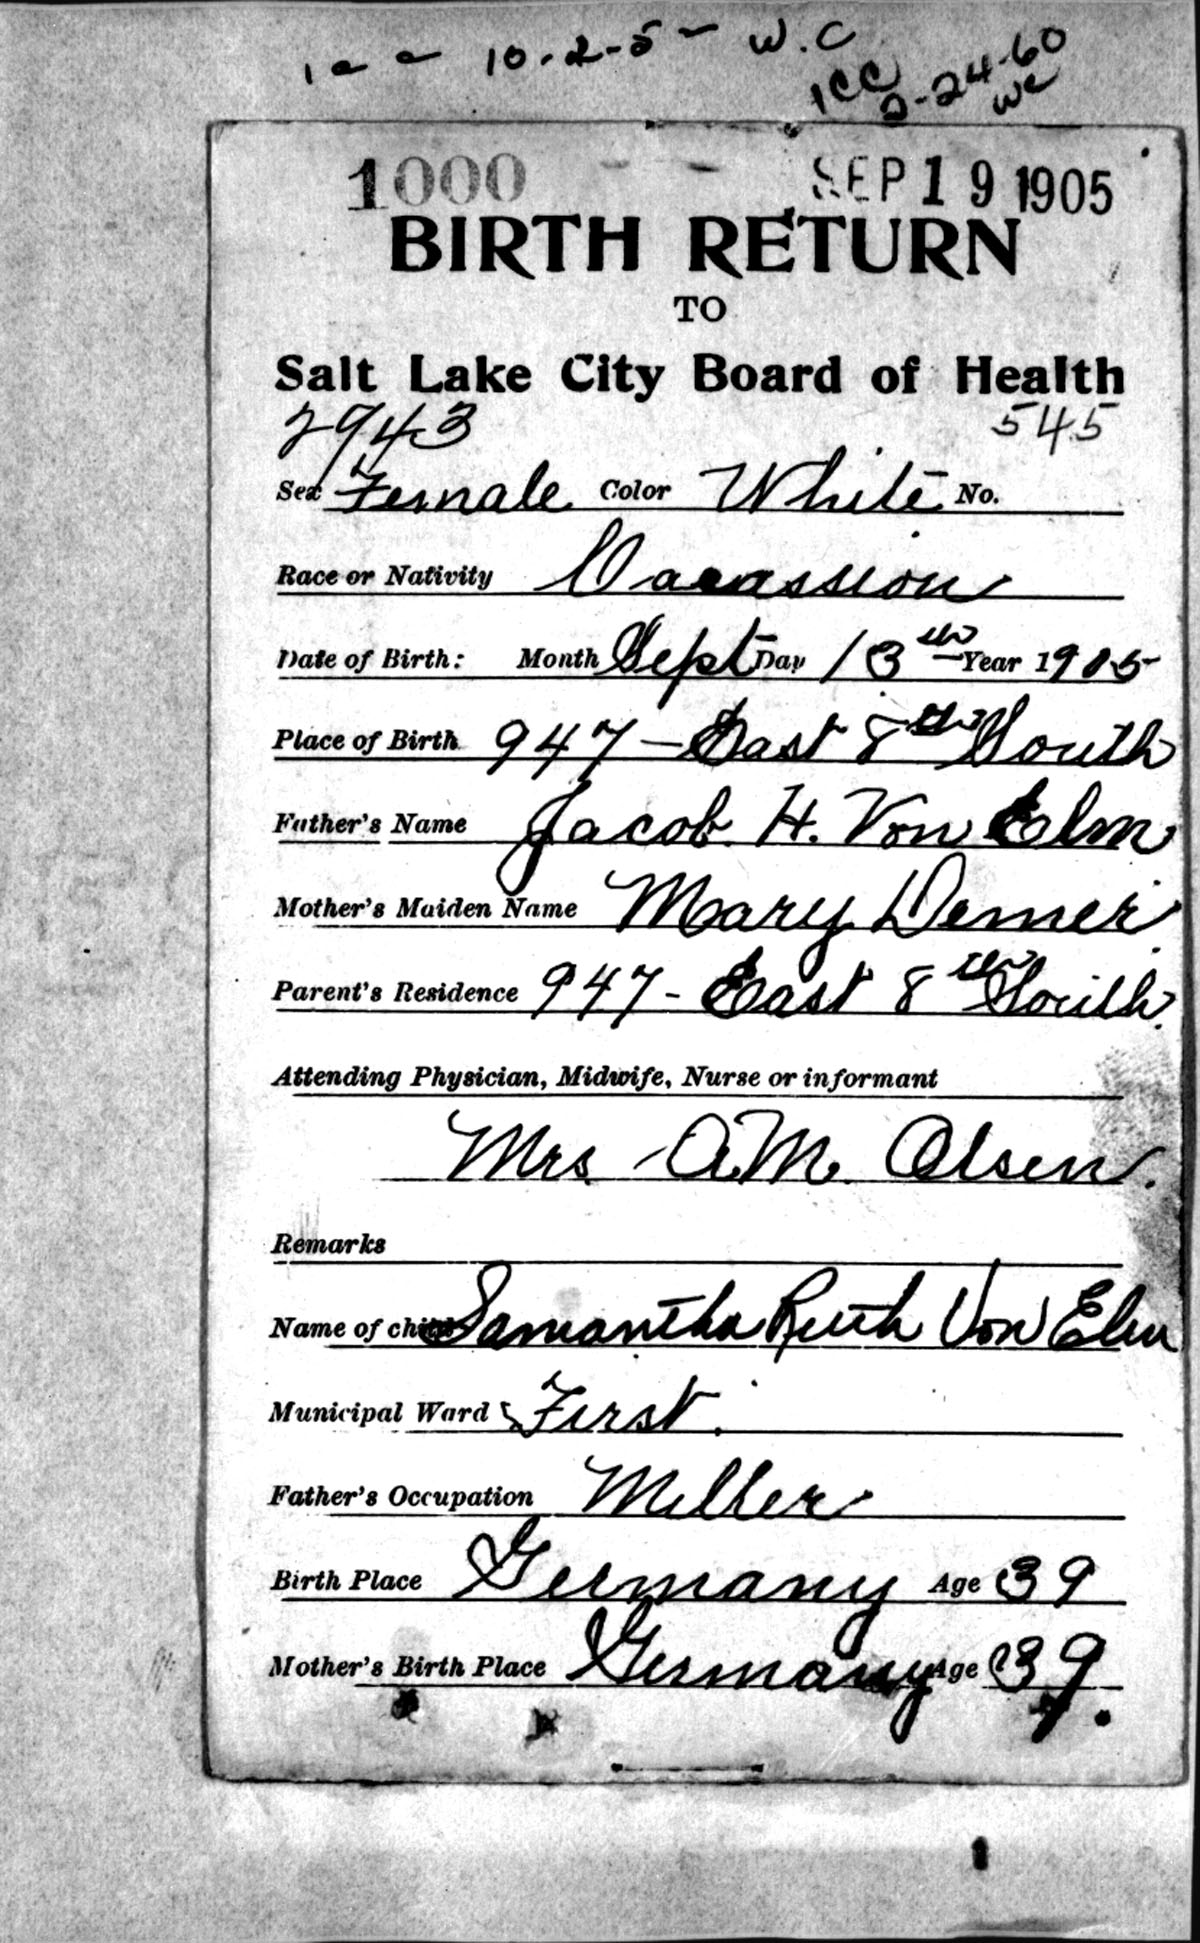 1 c c 10-2-5- W.C
1CC 2-24-60
WC
1000 SEP 19 1905
BIRTH RETURN
TO
Salt Lake City Board of Health
2943 545
Sex Female Color White No.
Race or Nativity Cacassion
Date of Birth: Month Sept Day 13th Year 1905
Place of Birth 947 - East 8th South
Father's Name Jacob H. Von Elm
Mother's Maiden Name Mary Demer
Parent's Residence 947 - East 8th South.
Attending Physician, Midwife, Nurse or informant
Mrs. A.M. Olsen.
Remarks
Name of child Samantha Ruth Von Elm
Municipal Ward First.
Father's Occupation Miller
Birth Place Germany Age 39
Mother's Birth Place Germany Age 39.